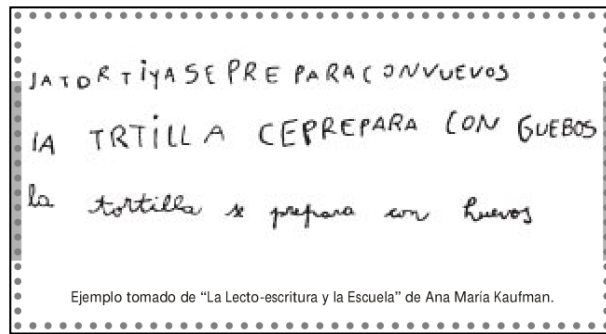 lATORTiYASEPREPARACONVUEVOS
lA TRTiLLA CEPREPARA CON GUEBOS
la tortilla se prepara con huevos
Ejemplo tomado de “La Lecto-escritura y la Escuela” de Ana María Kaufman.